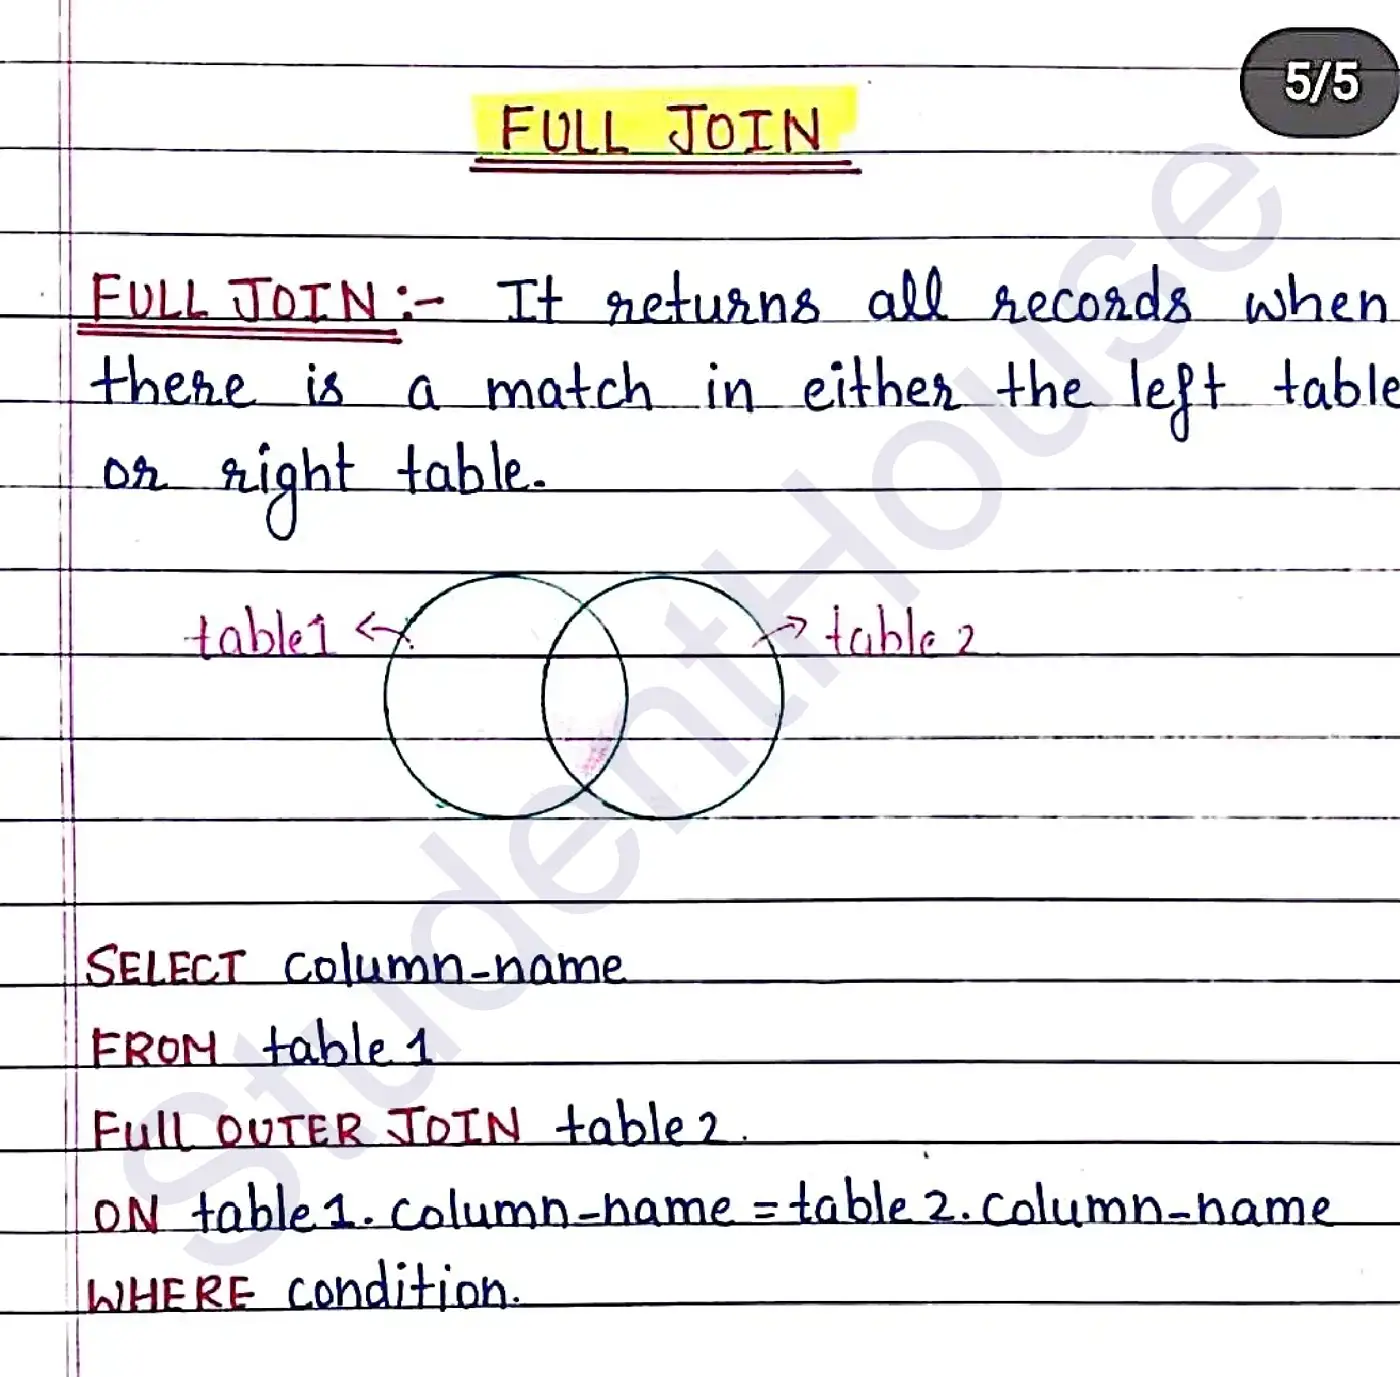 5/5
FULL JOIN
FULL JOIN :- It returns all records when
there is a match in either the left table
or right table.
table1
table 2
SELECT column-name
FROM table 1
Full OUTER JOIN table 2.
ON table 1. column-name = table 2. column-name
WHERE condition.
StudentHouse